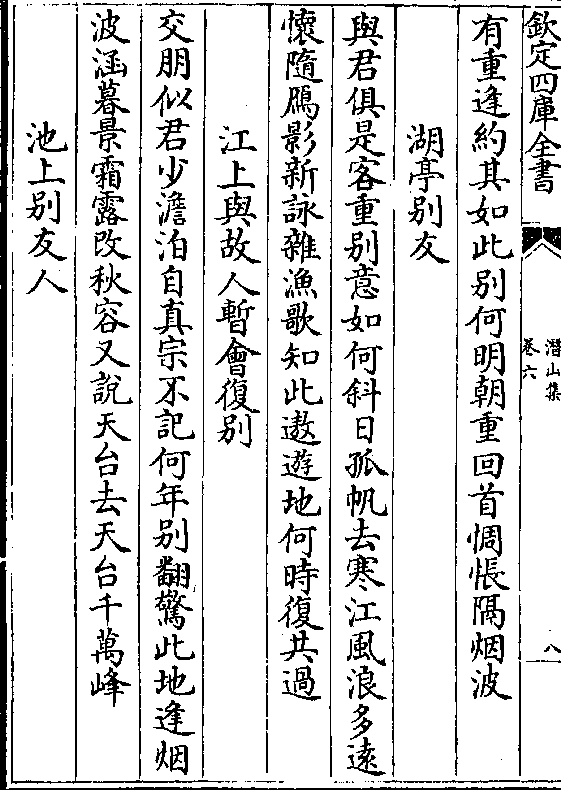 欽定四庫全書
潛山集
卷六
八
有重逢約其如此別何明朝重回首惆悵隔烟波
湖亭别友
與君俱是客重别意如何斜日孤帆去寒江風浪多遠
懷隨鴈影新詠雜漁歌知此遨遊地何時復共過
江上與故人暫會復别
交朋似君少澹泊自真宗不記何年别翻驚此地逢烟
波涵暮景霜露改秋容又說天台去天台千萬峰
池上别友人